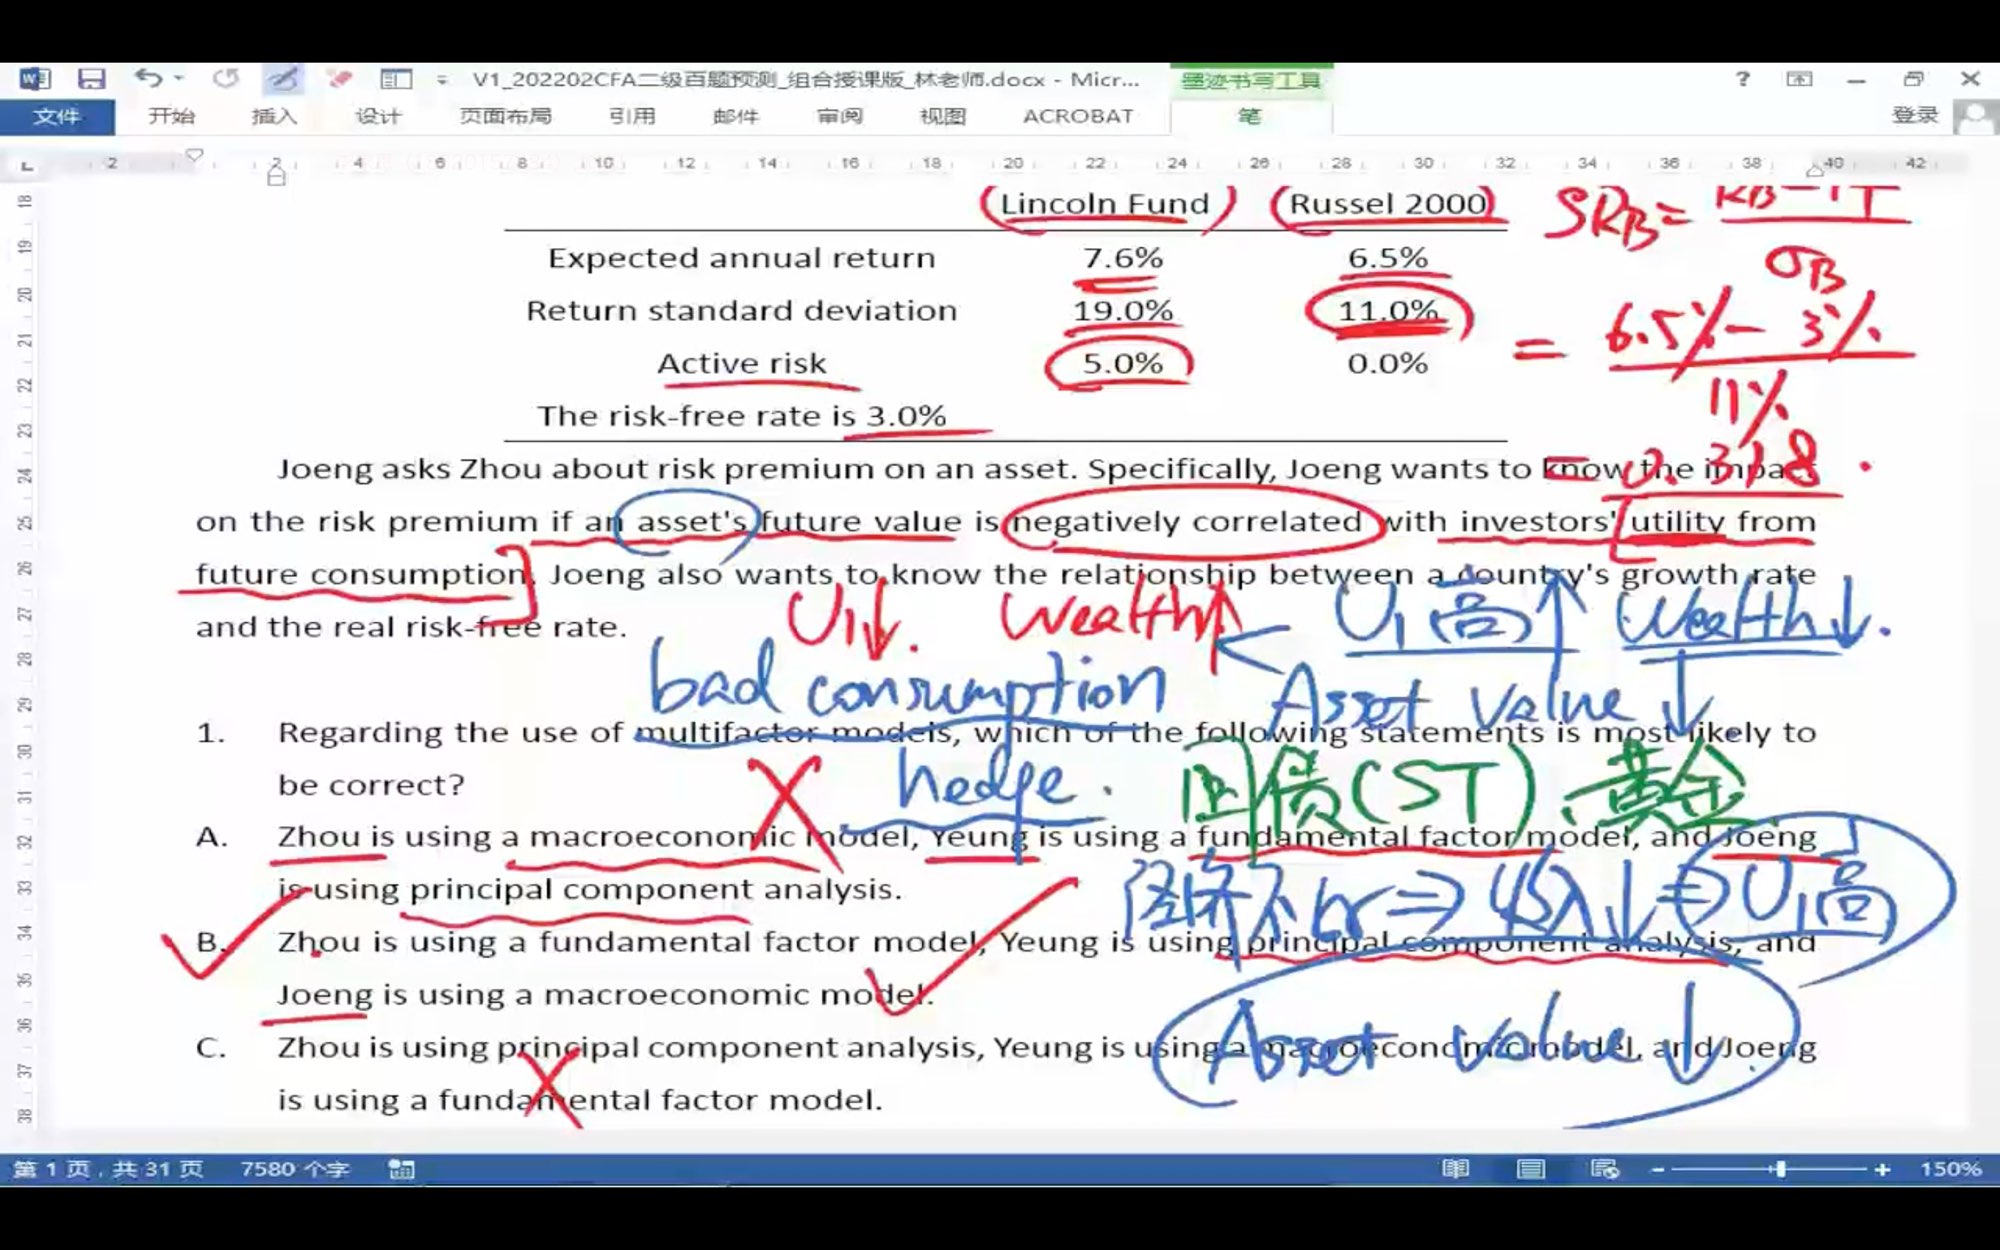 V1_202202CFA二级百题预测_组合授课版_林老师.docx - Micr... 墨迹书写工具 ?
文件 开始 插入 设计 页面布局 引用 邮件 审阅 视图 ACROBAT 笔 登录
L 2 2 4 6 8 10 12 14 16 18 20 22 24 26 28 30 32 34 36 38 40 42
Lincoln Fund Russel 2000 SRB=
Expected annual return 7.6% 6.5% σB
Return standard deviation 19.0% 11.0% = 6.5% - 3%
Active risk 5.0% 0.0% 11%
The risk-free rate is 3.0%
= 0.318
Joeng asks Zhou about risk premium on an asset. Specifically, Joeng wants to know the impact
on the risk premium if an asset's future value is negatively correlated with investors' utility from
future consumption. Joeng also wants to know the relationship between a country's growth rate
and the real risk-free rate.
U1↓. Wealth↑ U1高↑ Wealth↓.
bad consumption Asset Value ↓
1. Regarding the use of multifactor models, which of the following statements is most likely to
be correct?
hedge. 国债(ST)、黄金
A. Zhou is using a macroeconomic model, Yeung is using a fundamental factor model, and Joeng
is using principal component analysis.
经济不好⇒收入↓⇒U1高
B. Zhou is using a fundamental factor model, Yeung is using principal component analysis, and
Joeng is using a macroeconomic model.
Asset Value ↓
C. Zhou is using principal component analysis, Yeung is using a macroeconomic model, and Joeng
is using a fundamental factor model.
18
19
20
21
22
23
24
25
26
27
28
29
30
31
32
33
34
35
36
37
38
第 1 页，共 31 页 7580 个字 150%